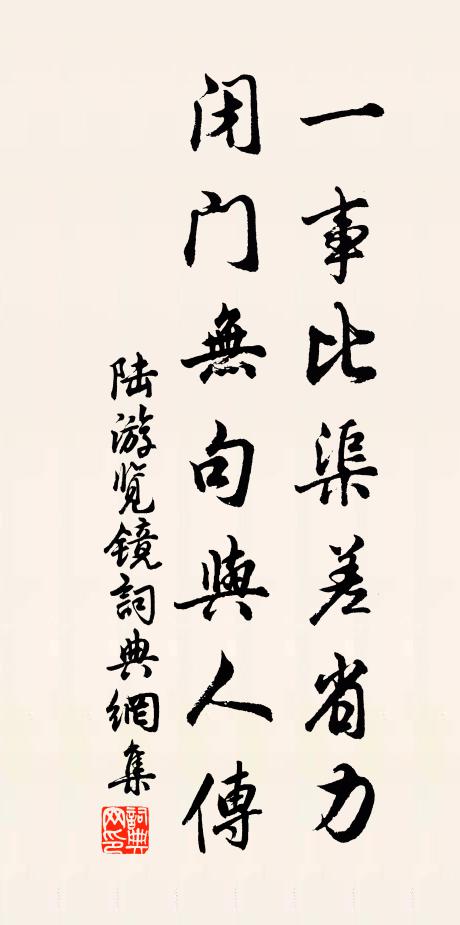 一事比渠差省力
闭门無句與人傳
陆游览镜詞典網集
詞典網印